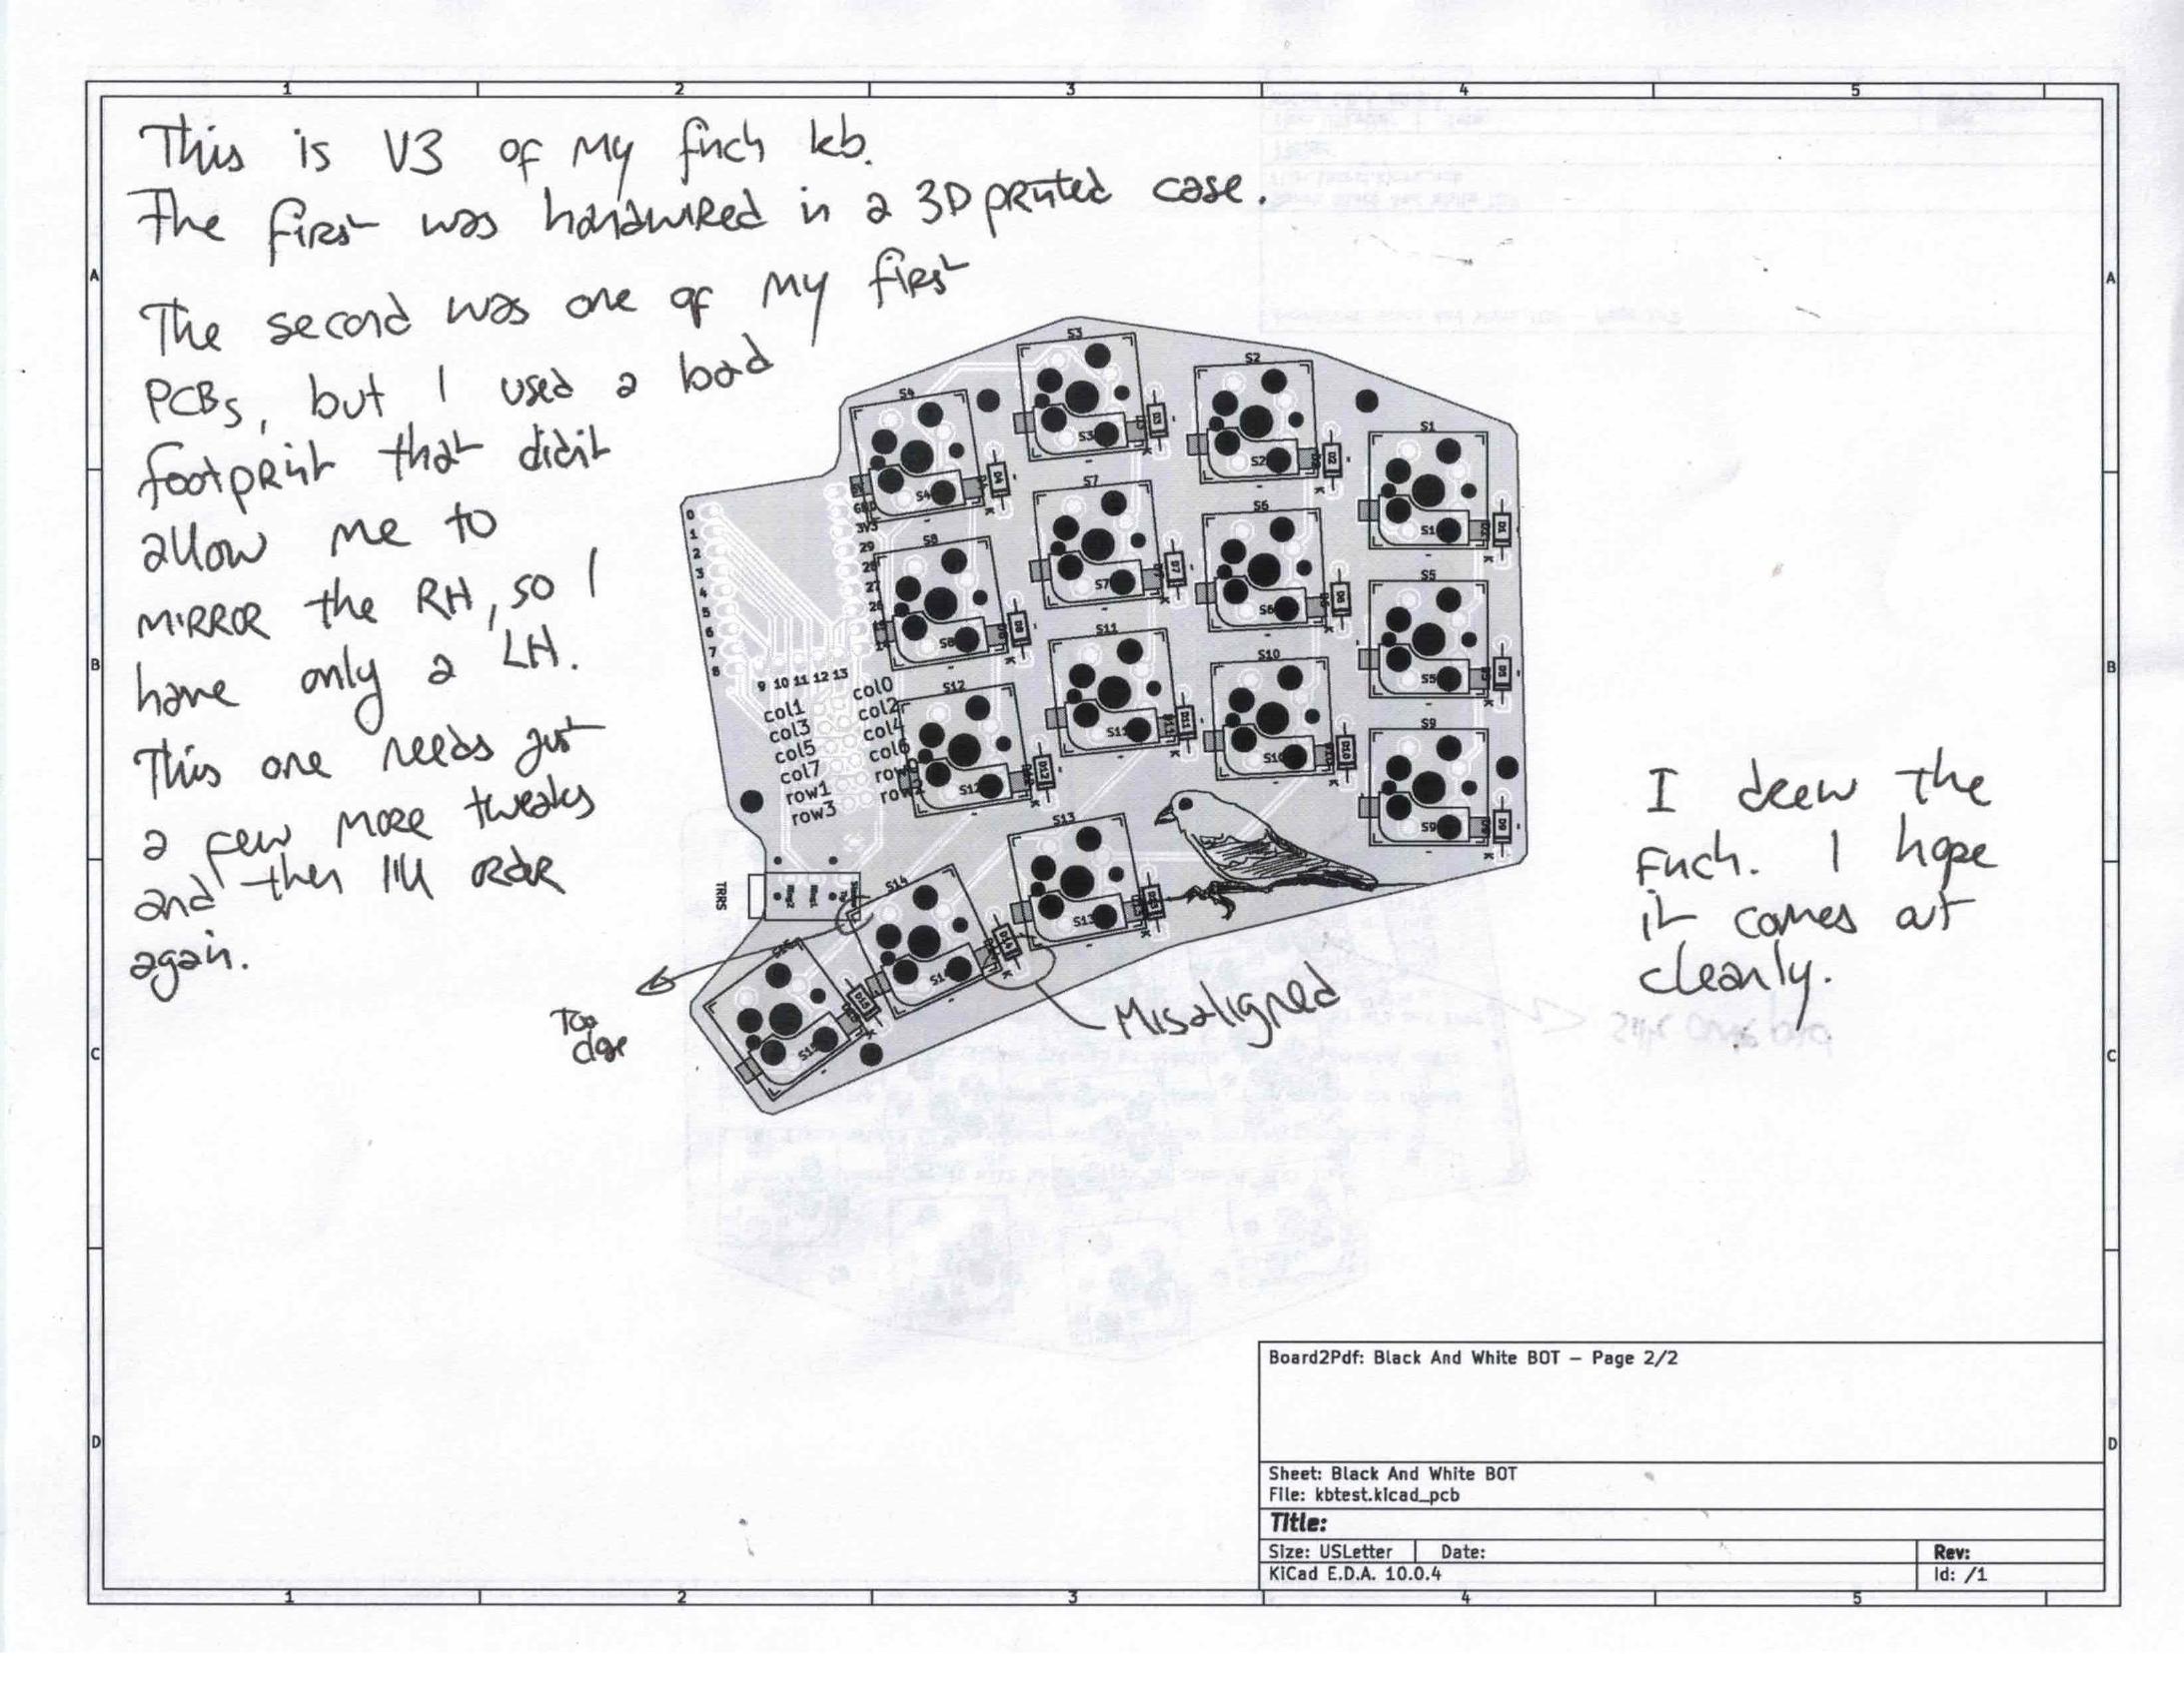 This is V3 of my finch kb.
The first was handwired in a 3D printed case.
The second was one of my first
PCBs, but I used a bad
footprint that didn't
allow me to
mirror the RH, so I
have only a LH.
This one needs just
a few more tweaks
and then I'll order
again.
Too
close
Misaligned
I drew the
finch. I hope
it comes out
cleanly.
1 2 3 4 5
A A
B B
C C
D D
1 2 3 4 5
S3
S2
S4
S1
S3
D3
S2
D2
S4
D4
S7
S6
S1
D1
GND
3V3
29
28
27
26
0
1
2
3
4
5
6
7
8
S8
S5
S7
D7
S6
D6
S8
D8
S11
S10
S5
D5
9 10 11 12 13
col0
col1
col2
col3
col4
col5
col6
col7
row0
row1
row2
row3
S12
S9
S11
D11
S10
D10
S12
D12
S13
S9
D9
TRRS
S14
S13
D13
D14
S14
D15
S15
K
Board2Pdf: Black And White BOT – Page 2/2
Sheet: Black And White BOT
File: kbtest.kicad_pcb
Title:
Size: USLetter Date: Rev:
KiCad E.D.A. 10.0.4 Id: /1